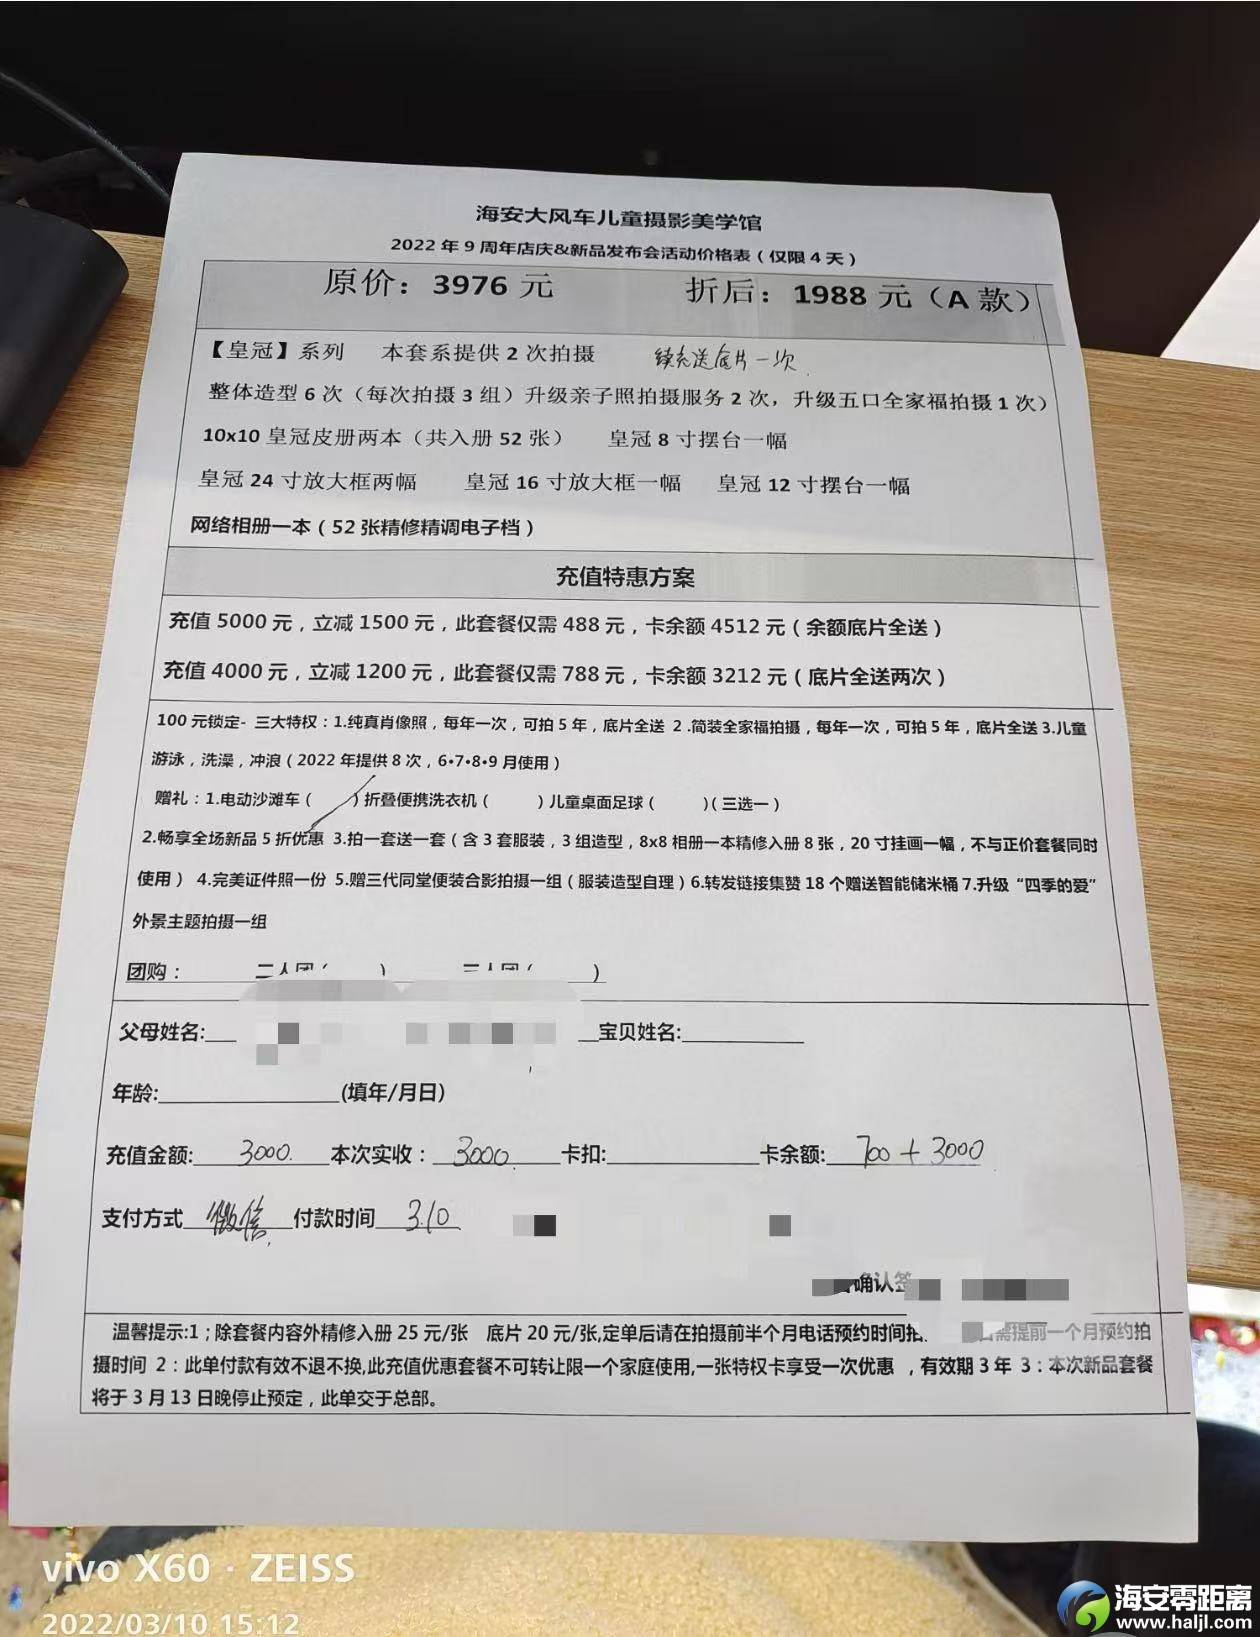 海安大风车儿童摄影美学馆
2022 年 9 周年店庆&新品发布会活动价格表（仅限 4 天）
原价：3976 元 折后：1988 元（A 款）
【皇冠】系列 本套系提供 2 次拍摄 续充送底片一次
整体造型 6 次（每次拍摄 3 组）升级亲子照拍摄服务 2 次，升级五口全家福拍摄 1 次）
10x10 皇冠皮册两本（共入册 52 张） 皇冠 8 寸摆台一幅
皇冠 24 寸放大框两幅 皇冠 16 寸放大框一幅 皇冠 12 寸摆台一幅
网络相册一本（52 张精修精调电子档）
充值特惠方案
充值 5000 元，立减 1500 元，此套餐仅需 488 元，卡余额 4512 元（余额底片全送）
充值 4000 元，立减 1200 元，此套餐仅需 788 元，卡余额 3212 元（底片全送两次）
100 元锁定- 三大特权：1.纯真肖像照，每年一次，可拍 5 年，底片全送 2 .简装全家福拍摄，每年一次，可拍 5 年，底片全送 3.儿童
游泳，洗澡，冲浪（2022 年提供 8 次，6·7·8·9 月使用）
赠礼：1.电动沙滩车（ ）折叠便携洗衣机（ ）儿童桌面足球（ ）（三选一）
2.畅享全场新品 5 折优惠 3.拍一套送一套（含 3 套服装，3 组造型，8x8 相册一本精修入册 8 张，20 寸挂画一幅，不与正价套餐同时
使用） 4.完美证件照一份 5.赠三代同堂便装合影拍摄一组（服装造型自理）6.转发链接集赞 18 个赠送智能储米桶 7.升级“四季的爱”
外景主题拍摄一组
团购： 二人团（ ） 三人团（ ）
父母姓名: 宝贝姓名:
年龄: (填年/月日)
充值金额: 3000. 本次实收： 3000. 卡扣: 卡余额: 700 + 3000
支付方式 微信 付款时间 3.10
确认签
温馨提示:1；除套餐内容外精修入册 25 元/张 底片 20 元/张,定单后请在拍摄前半个月电话预约时间拍 需提前一个月预约拍
摄时间 2：此单付款有效不退不换,此充值优惠套餐不可转让限一个家庭使用,一张特权卡享受一次优惠 ，有效期 3 年 3：本次新品套餐
将于 3 月 13 日晚停止预定，此单交于总部。
vivo X60 · ZEISS
2022/03/10 15:12
海安零距离
www.haljl.com